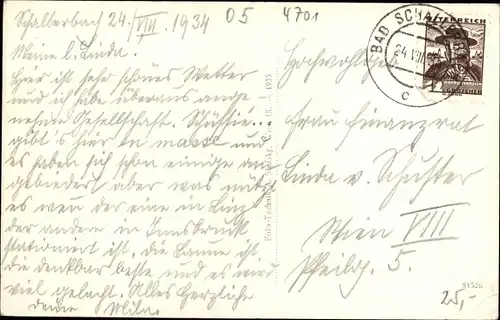 Schallerbach 24./VIII. 1934
05
4701
Meine l. Linda.
Hier ist sehr schönes Wetter
und ich habe überaus ange
nehme Gesellschaft.
gibt's hier en masse und
es haben sich schon einige an
gebiedert aber was nützt
es wenn der eine in Linz
der andere in Innsbruck
stationiert ist. Die Laune ist
die denkbar beste und es wird
viel gelacht. Alles Herzliche
deine
BAD SCHA
24 VIII
c
ÖSTERREICH
12
Hochwohlgeb.
Frau Finanzrat
Linda v. Schuster
Wien VIII
Pfeilg. 5.
1935
91520
25,-